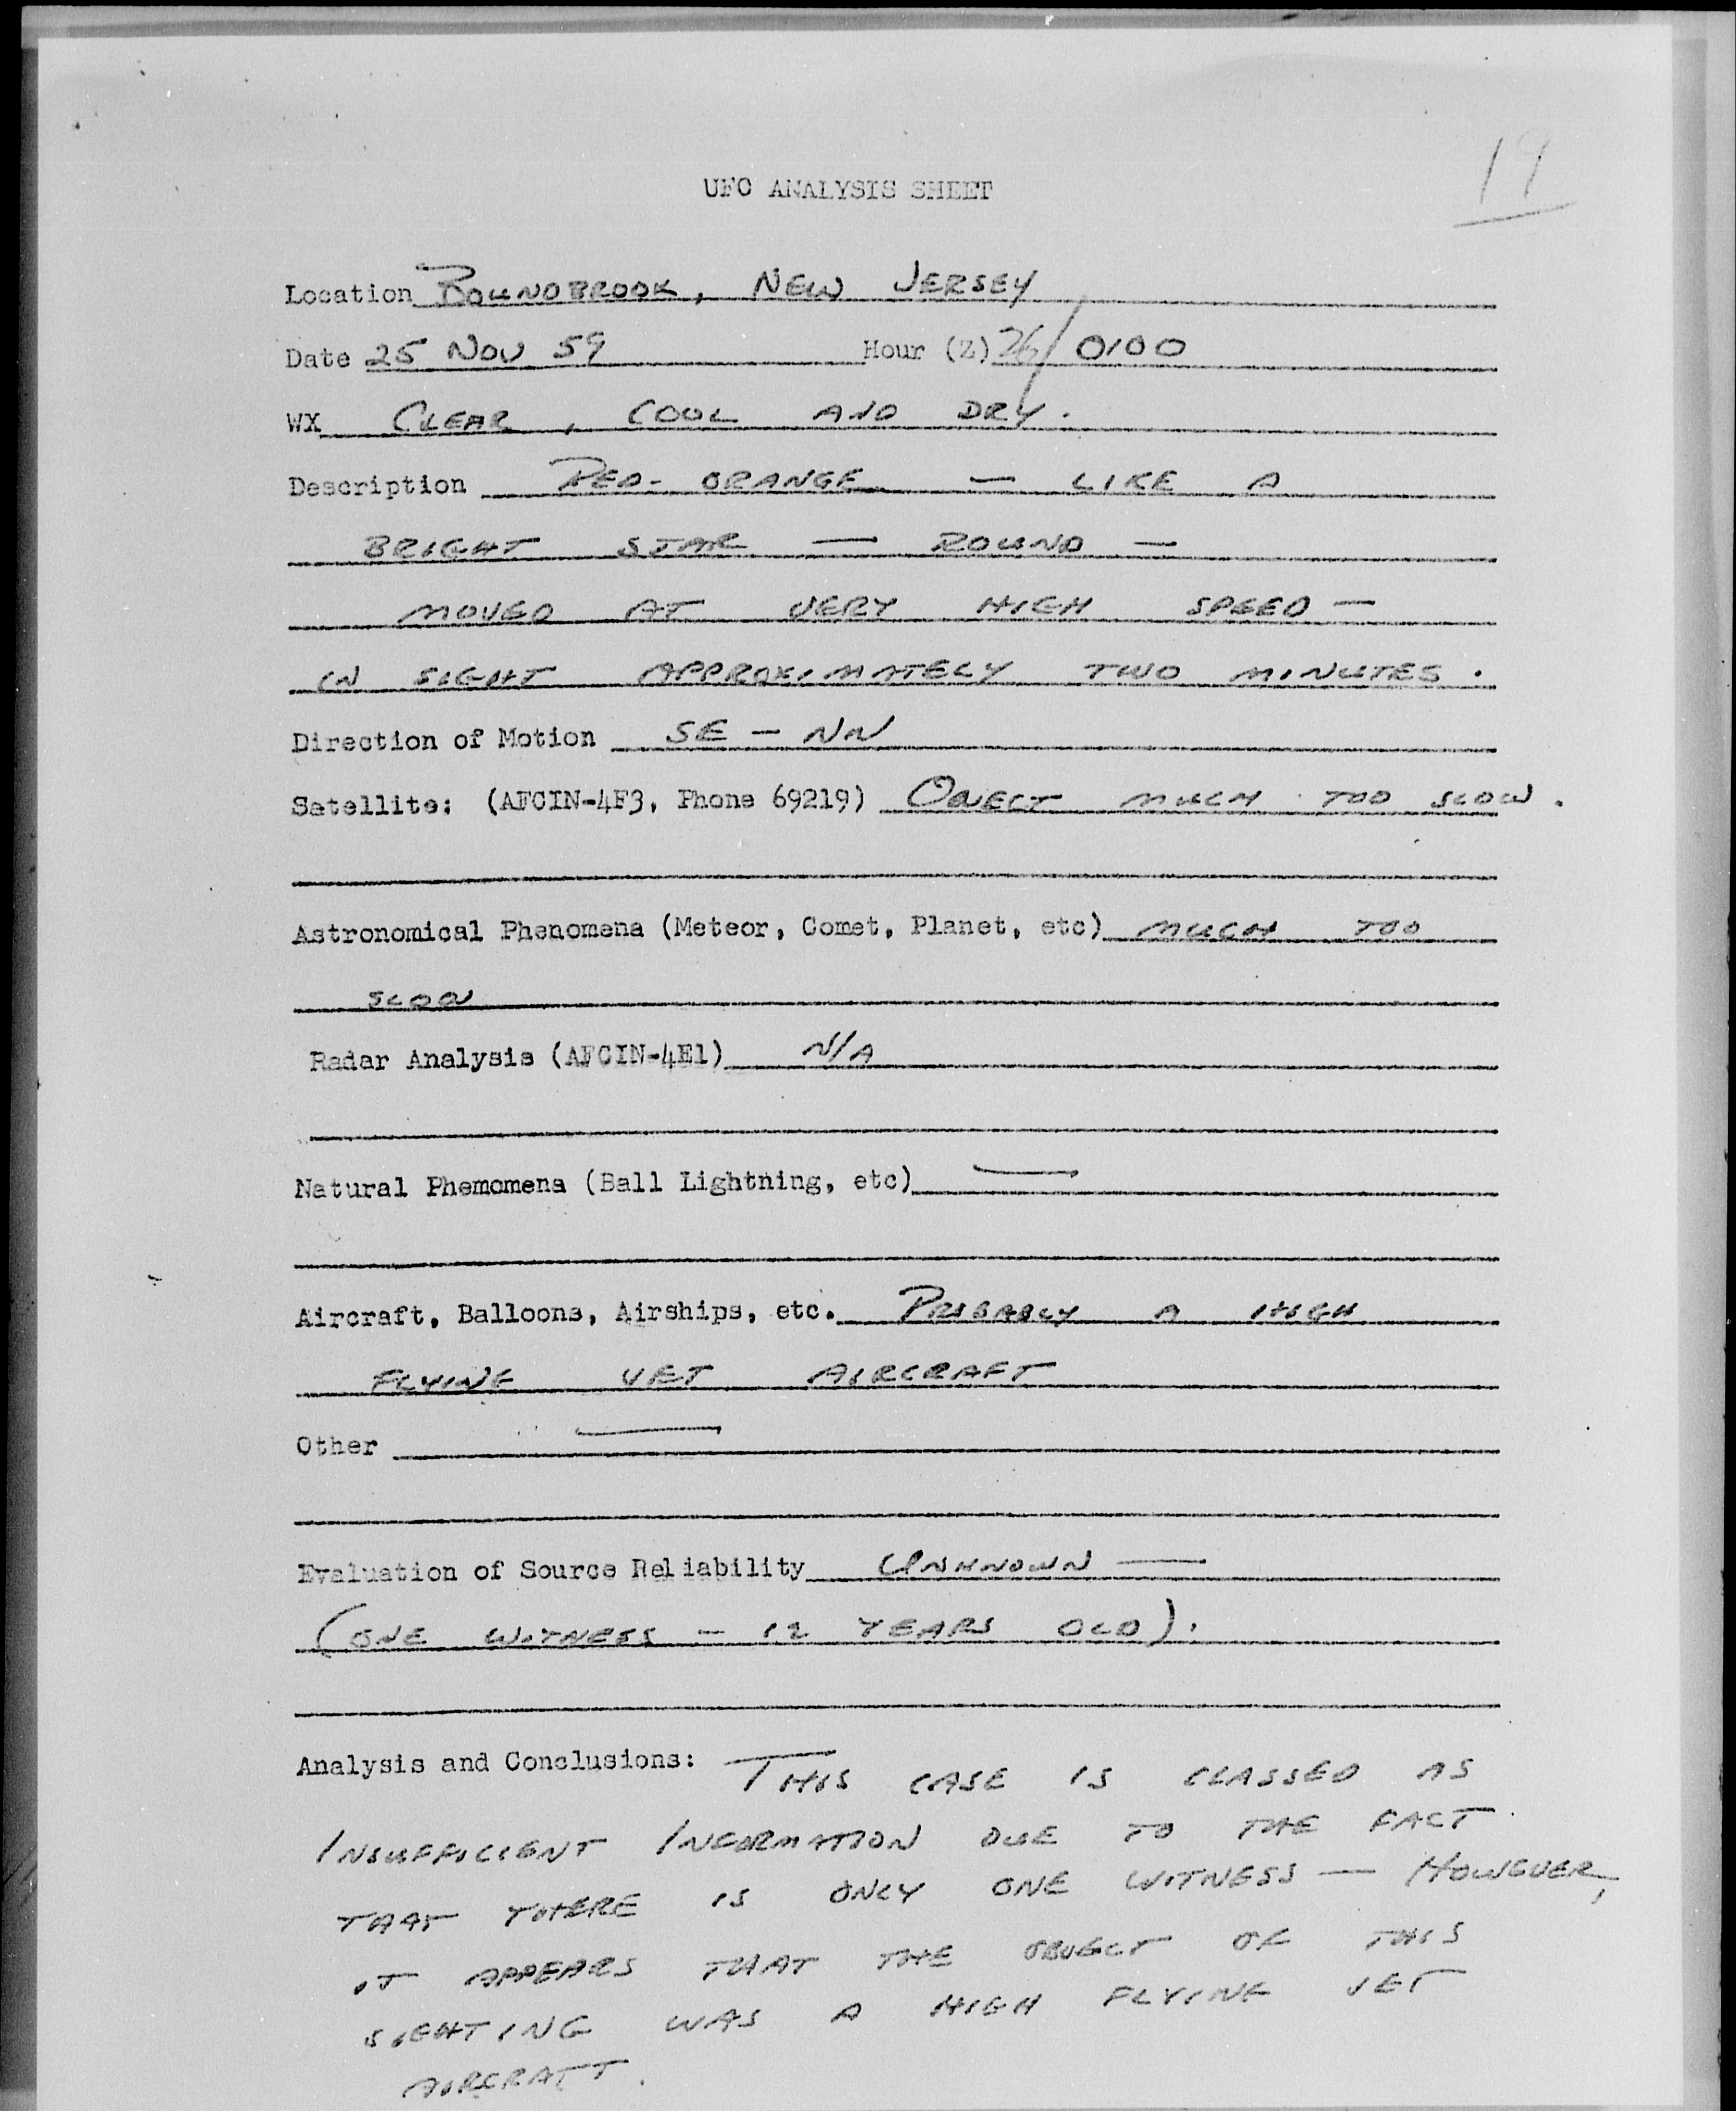 19
UFO ANALYSIS SHEET
Location BOUNDBROOK, NEW JERSEY
Date 25 NOV 59 Hour (Z) 26/0100
WX CLEAR, COOL AND DRY.
Description RED-ORANGE — LIKE A
BRIGHT STAR — ROUND —
MOVED AT VERY HIGH SPEED —
IN SIGHT APPROXIMATELY TWO MINUTES.
Direction of Motion SE - NW
Satellite: (AFCIN-4F3, Phone 69219) OBJECT MUCH TOO SLOW.
Astronomical Phenomena (Meteor, Comet, Planet, etc) MUCH TOO
SLOW
Radar Analysis (AFCIN-4E1) N/A
Natural Phemomena (Ball Lightning, etc) —
Aircraft, Balloons, Airships, etc. PROBABLY A HIGH
FLYING JET AIRCRAFT
Other —
Evaluation of Source Reliability UNKNOWN —
(ONE WITNESS - 12 YEARS OLD).
Analysis and Conclusions: THIS CASE IS CLASSED AS
INSUFFICIENT INFORMATION DUE TO THE FACT
THAT THERE IS ONLY ONE WITNESS — HOWEVER,
IT APPEARS THAT THE OBJECT OF THIS
SIGHTING WAS A HIGH FLYING JET
AIRCRAFT.